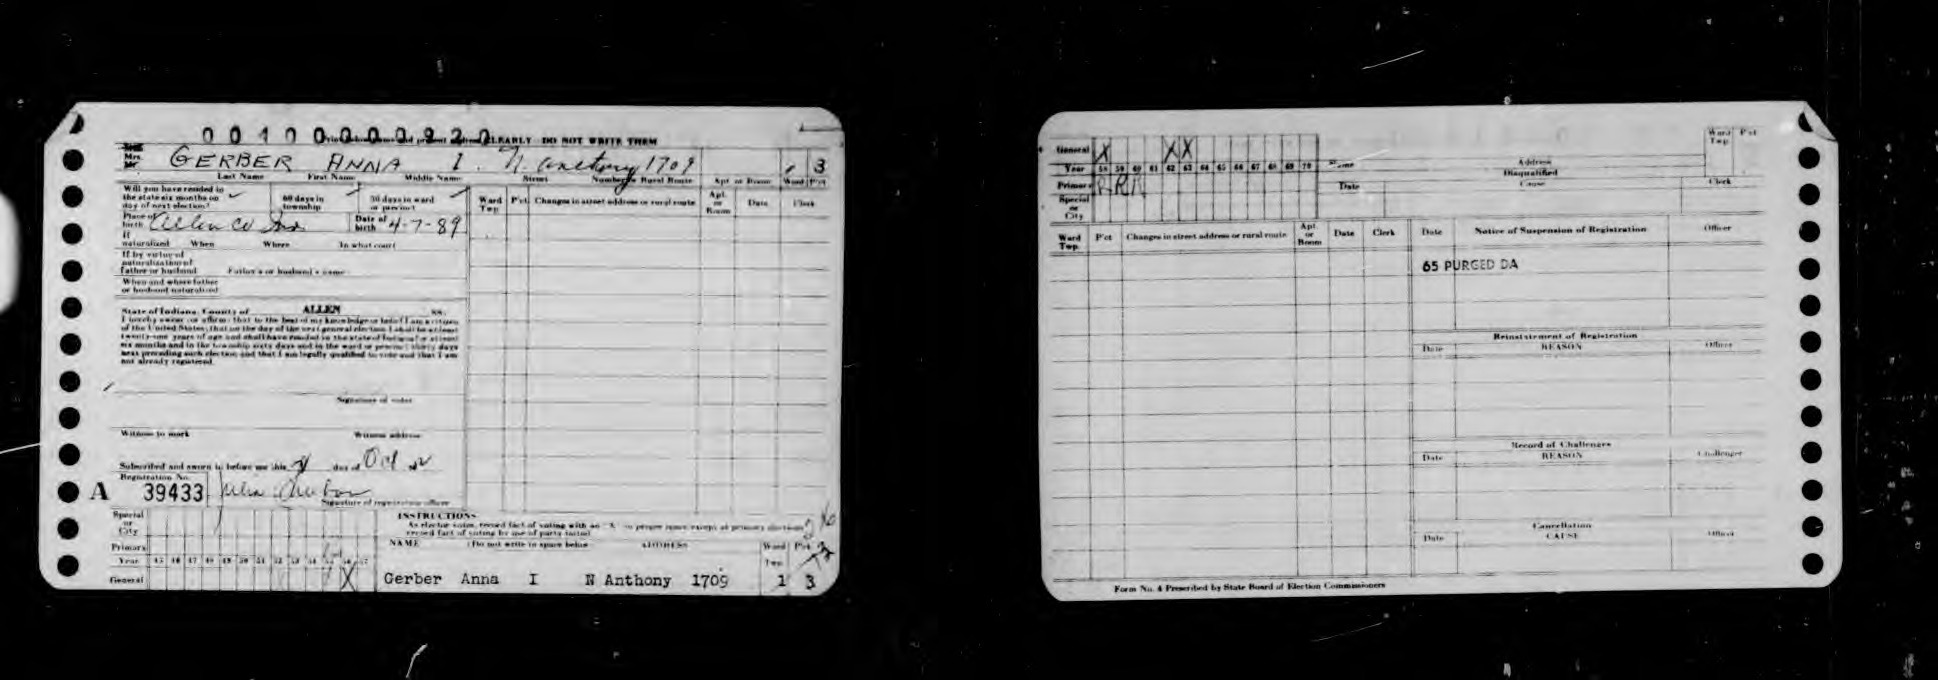 0010000920
CLEARLY DO NOT WRITE THEM
Mrs. GERBER ANNA I. N. Anthony 1709 3
Last Name First Name Middle Name Street Number or Rural Route Apt or Room Ward Pct
Will you have resided in
the state six months on
day of next election?
60 days in
township
30 days in ward
or precinct
Ward
Twp.
P'ct. Changes in street address or rural route
Apt.
or
Room
Date Clerk
Place of
birth Allen Co Ind
Date of
birth 4-7-89
If
naturalized When Where In what court
If by virtue of
naturalization of
father or husband Father's or husband's name
When and where father
or husband naturalized
State of Indiana, County of ALLEN SS:
I hereby swear (or affirm) that to the best of my knowledge or belief I am a citizen
of the United States; that on the day of the next general election I shall be at least
twenty-one years of age and shall have resided in the state of Indiana for at least
six months and in the township sixty days and in the ward or precinct thirty days
next preceding such election and that I am legally qualified to vote and that I am
not already registered.
Signature of voter
Witness to mark Witness address
Subscribed and sworn to before me this day of Oct
Registration No.
A 39433
Signature of registration officer
Special
or
City
Primary
Year 45 46 47 48 49 50 51 52 53 54 55 56 57
General X
INSTRUCTIONS
As elector votes, record fact of voting with an "X" in proper space except at primary elections
record fact of voting by use of party initial
NAME (Do not write in space below) ADDRESS Ward
Twp. P'ct.
Gerber Anna I N Anthony 1709 1 3
General X X X
Year 58 59 60 61 62 63 64 65 66 67 68 69 70
Primary R R R
Special
or
City
Ward
Twp.
P'ct
Name Address
Disqualified
Date Cause Clerk
Ward
Twp.
P'ct Changes in street address or rural route
Apt.
or
Room
Date Clerk
Date Notice of Suspension of Registration Officer
65 PURGED DA
Reinstatement of Registration
Date REASON Officer
Record of Challenges
Date REASON Challenger
Cancellation
Date CAUSE Officer
Form No. 4 Prescribed by State Board of Election Commissioners